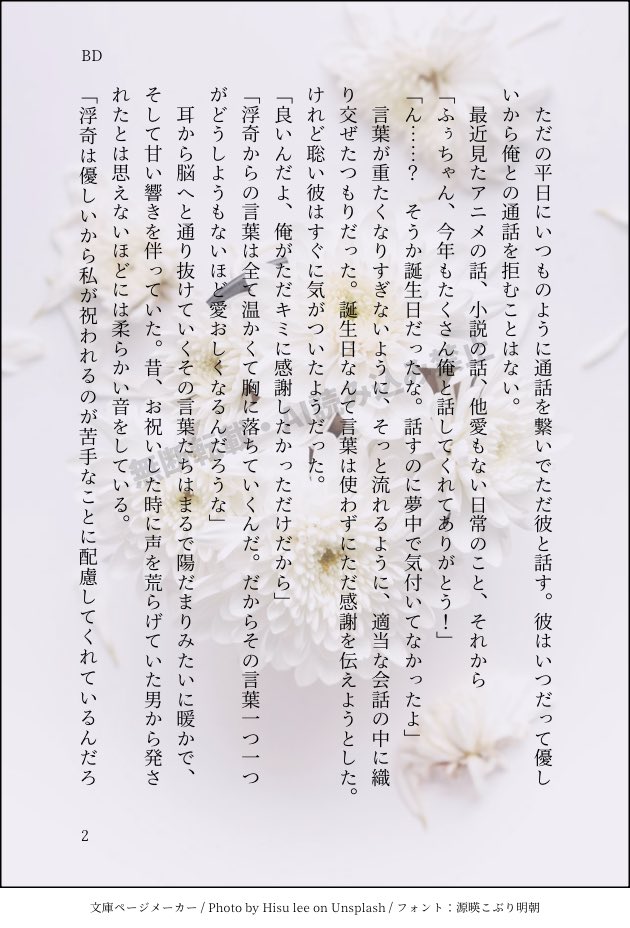 BD
　ただの平日にいつものように通話を繋いでただ彼と話す。彼はいつだって優し
いから俺との通話を拒むことはない。
　最近見たアニメの話、小説の話、他愛もない日常のこと、それから
「ふぅちゃん、今年もたくさん俺と話してくれてありがとう！」
「ん……？　そうか誕生日だったな。話すのに夢中で気付いてなかったよ」
　言葉が重たくなりすぎないように、そっと流れるように、適当な会話の中に織
り交ぜたつもりだった。誕生日なんて言葉は使わずにただ感謝を伝えようとした。
けれど聡い彼はすぐに気がついたようだった。
「良いんだよ、俺がただキミに感謝したかっただけだから」
「浮奇からの言葉は全て温かくて胸に落ちていくんだ。だからその言葉一つ一つ
がどうしようもないほど愛おしくなるんだろうな」
　耳から脳へと通り抜けていくその言葉たちはまるで陽だまりみたいに暖かで、
そして甘い響きを伴っていた。昔、お祝いした時に声を荒らげていた男から発さ
れたとは思えないほどには柔らかい音をしている。
「浮奇は優しいから私が祝われるのが苦手なことに配慮してくれているんだろ
無断転載・AI読み込み禁止
2
文庫ページメーカー / Photo by Hisu lee on Unsplash / フォント：源暎こぶり明朝